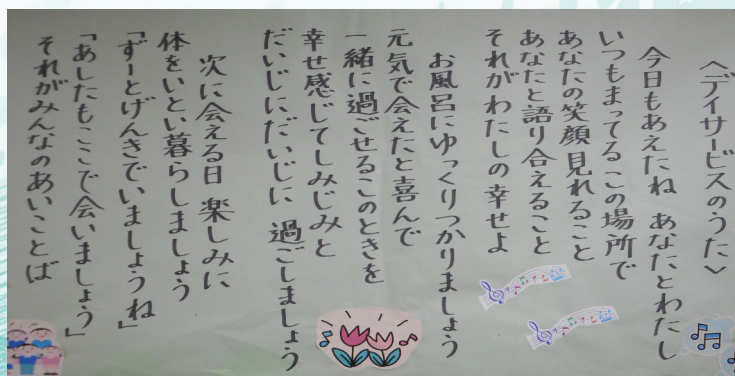 ＜デイサービスのうた＞
今日もあえたね　あなたとわたし
いつもまってる この場所で
あなたの笑顔見れること
あなたと語り合えること
それがわたしの幸せよ
お風呂にゆっくりつかりましょう
元気で会えたと喜んで
一緒に過ごせるこのときを
幸せ感じてしみじみと
だいじにだいじに 過ごしましょう
次に会える日 楽しみに
体をいとい暮らしましょう
「ずーとげんきでいましょうね」
「あしたもここで会いましょう」
それがみんなのあいことば